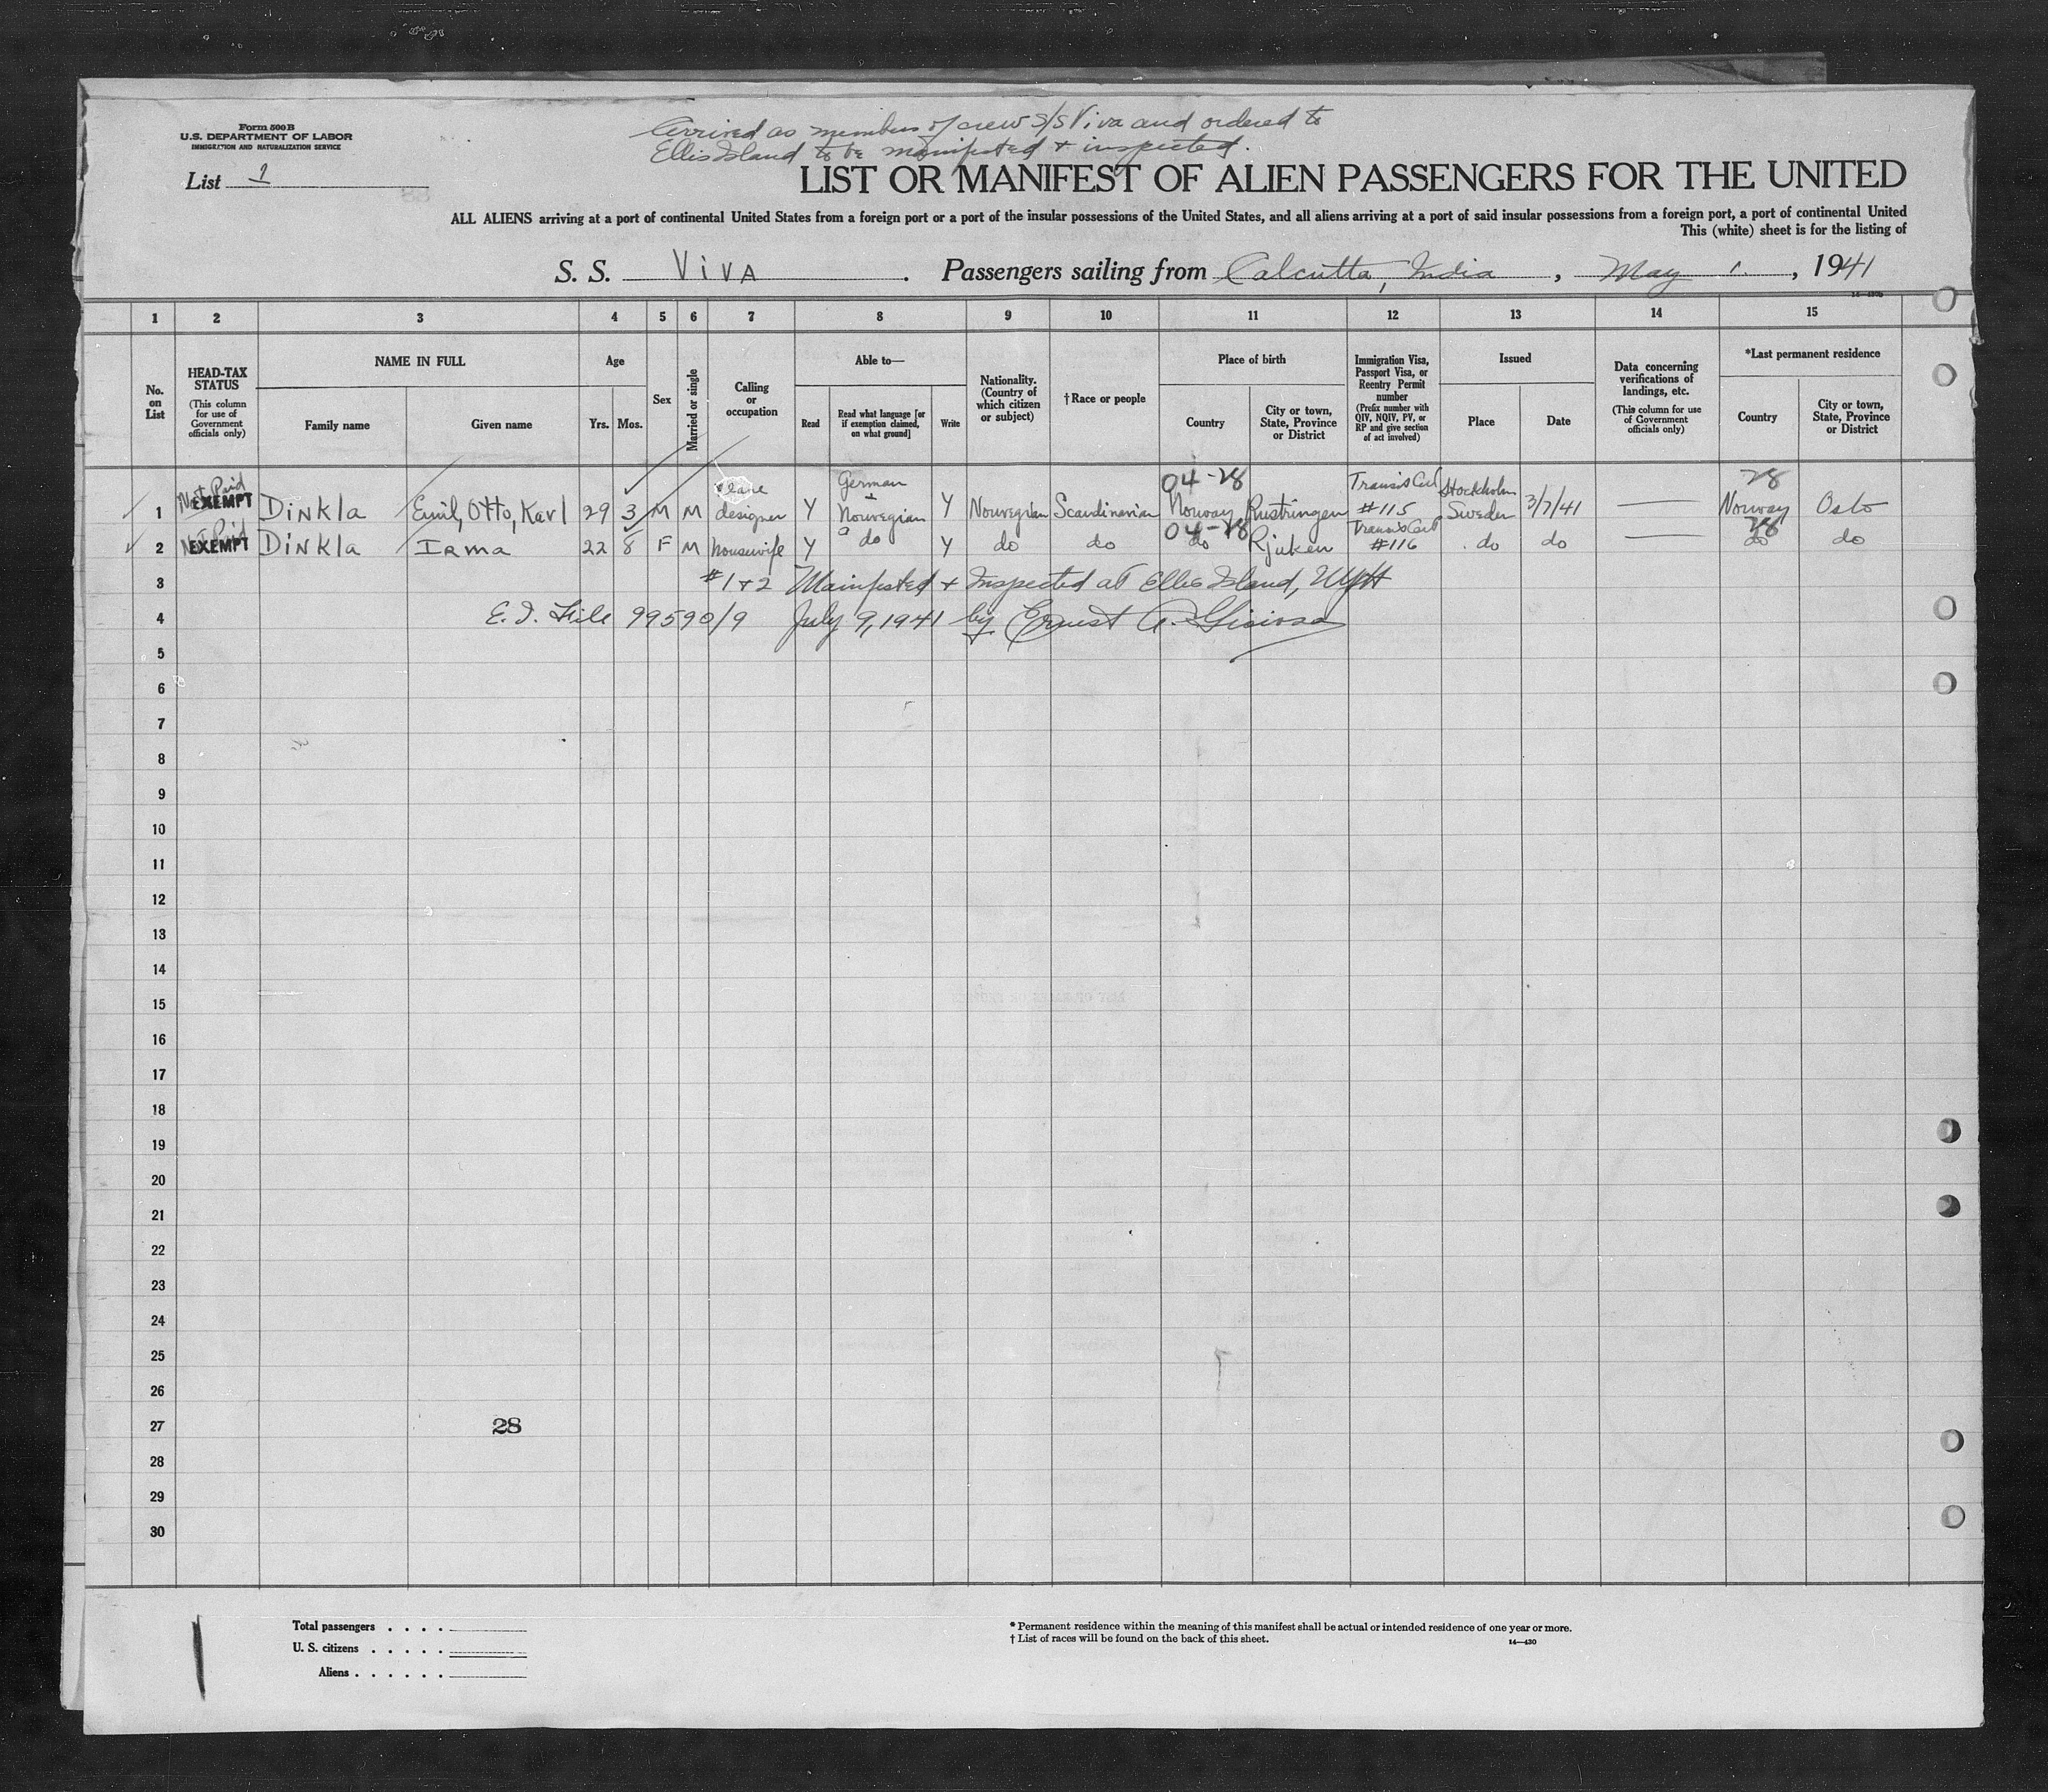 Arrived as member of crew S/S Viva and ordered to
Ellis Island to be manifested + inspected.
Form 500 B
U.S. DEPARTMENT OF LABOR
IMMIGRATION AND NATURALIZATION SERVICE
List 1
LIST OR MANIFEST OF ALIEN PASSENGERS FOR THE UNITED
ALL ALIENS arriving at a port of continental United States from a foreign port or a port of the insular possessions of the United States, and all aliens arriving at a port of said insular possessions from a foreign port, a port of continental United
This (white) sheet is for the listing of
S. S. Viva . Passengers sailing from Calcutta, India , May 1. , 1941
1 2 3 4 5 6 7 8 9 10 11 12 13 14 15
No. on List
HEAD-TAX STATUS
(This column for use of Government officials only)
NAME IN FULL
Family name Given name
Age
Yrs. Mos.
Sex
Married or single
Calling or occupation
Able to—
Read
Read what language [or if exemption claimed, on what ground]
Write
Nationality. (Country of which citizen or subject)
†Race or people
Place of birth
Country
City or town, State, Province or District
Immigration Visa, Passport Visa, or Reentry Permit number
(Prefix number with QIV, NQIV, PV, or RP and give section of act involved)
Issued
Place Date
Data concerning verifications of landings, etc.
(This column for use of Government officials only)
*Last permanent residence
Country
City or town, State, Province or District
1 Not Paid EXEMPT Dinkla Emil, Otto, Karl 29 3 M M designer Y German + Norwegian Y Norwegian Scandinavian 04-28 Norway Rustringen #115 Stockholm Sweden 3/7/41 — 28 Norway Oslo
2 Not Paid EXEMPT Dinkla Irma 22 8 F M housewife Y do Y do do 04-28 do Rjuken #116 do do — 28 do do
3 #1+2 Mainfested + Inspected at Ellis Island, NYH
4 E. I. File 99590/9 July 9, 1941 by Ernest A.
5
6
7
8
9
10
11
12
13
14
15
16
17
18
19
20
21
22
23
24
25
26
27 28
28
29
30
Total passengers . . . .
U. S. citizens . . . . .
Aliens . . . . . .
* Permanent residence within the meaning of this manifest shall be actual or intended residence of one year or more.
† List of races will be found on the back of this sheet.
14—430